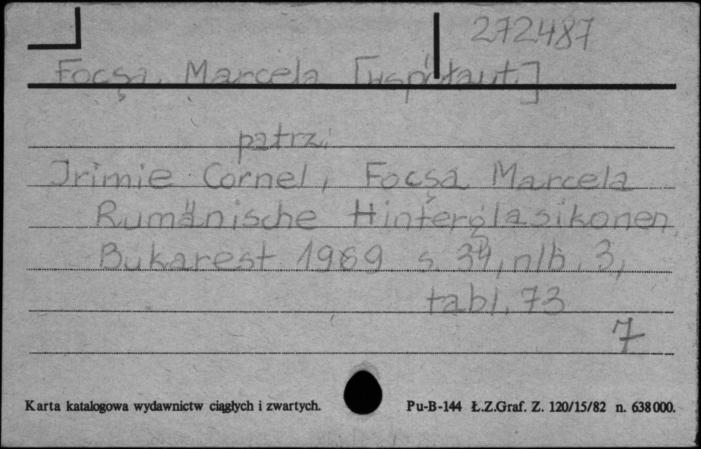 272487
Focşa, Marcela [współaut.]
patrz:
Irimie Cornel, Focşa Marcela
Rumänische Hinterglasikonen
Bukarest 1969 s. 34, nlb. 3,
tabl. 73
7
Karta katalogowa wydawnictw ciągłych i zwartych.
Pu-B-144 Ł.Z.Graf. Z. 120/15/82 n. 638000.